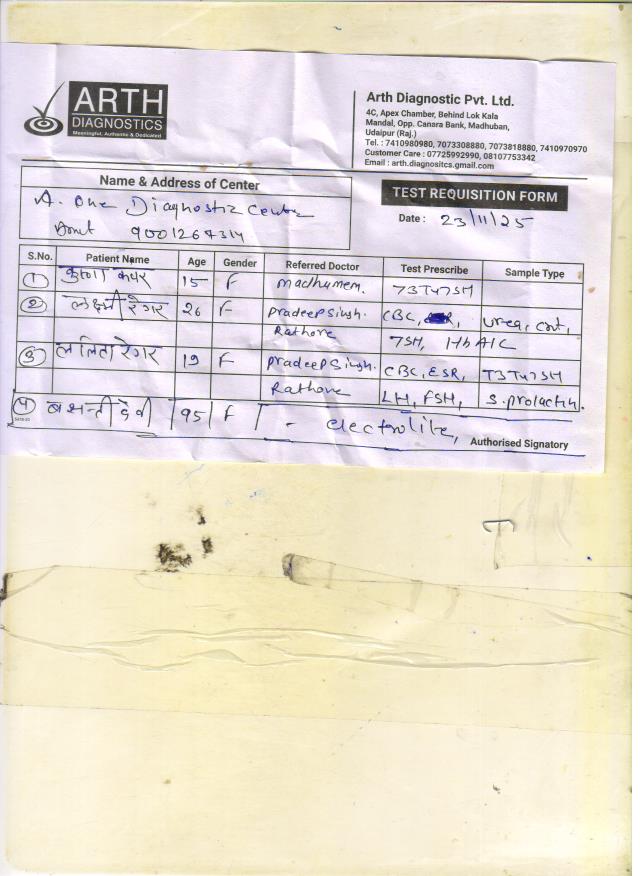 ARTH
DIAGNOSTICS
Meaningful, Authentic & Dedicated
Arth Diagnostic Pvt. Ltd.
4C, Apex Chamber, Behind Lok Kala
Mandal, Opp. Canara Bank, Madhuban,
Udaipur (Raj.)
Tel. : 7410980980, 7073308880, 7073818880, 7410970970
Customer Care : 07725992990, 08107753342
Email : arth.diagnositcs.gmail.com
Name & Address of Center
A. One Diagnostic Center
9001264314
TEST REQUISITION FORM
Date : 23/11/25
S.No. Patient Name Age Gender Referred Doctor Test Prescribe Sample Type
1 15 F madhumem. T3T4TSH
2 लक्ष्मी रेगर 26 F pradeepsingh. CBC, urea, 
Rathore TSH, HbA1C
3 ललिता रेगर 19 F pradeepsingh. CBC, ESR, T3T4TSH
Rathore LH, FSH, S. prolactin.
4 देवी 95 F - electrolite,
Authorised Signatory